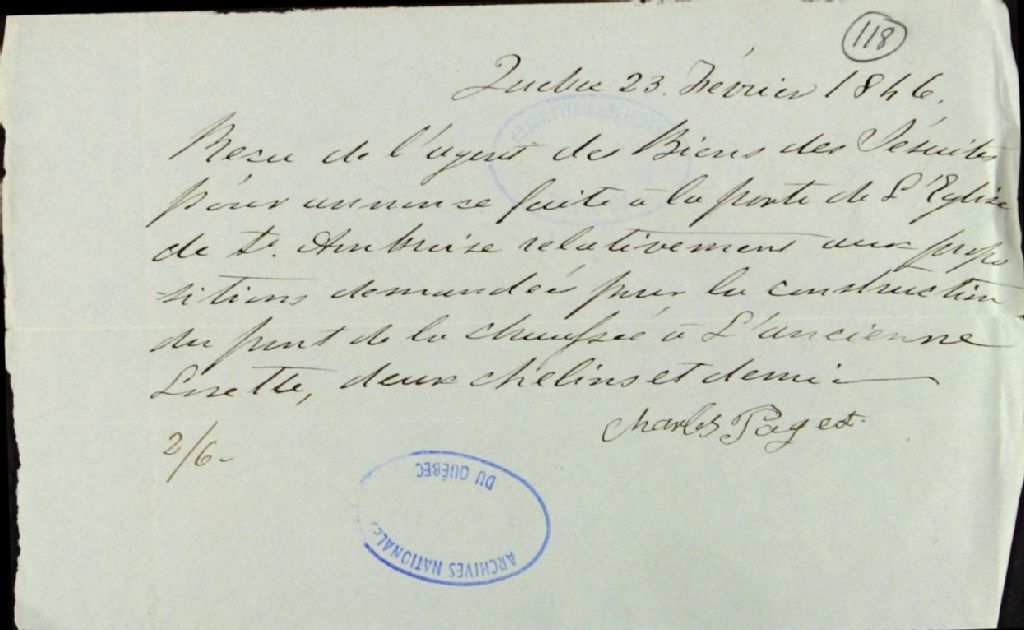 118
Quebec 23. Février 1846.
Resu de l'agent des Biens des Jésuites
pour annonse faite à la porte de L'Eglise
de St. Ambroise relativement aux propo
sitions demandées pour la construction
du pont de la chaussée à L'ancienne
Lorette, deux chelins et demie
Charles Paget
2/6-
ARCHIVES NATIONALES
DU QUÉBEC